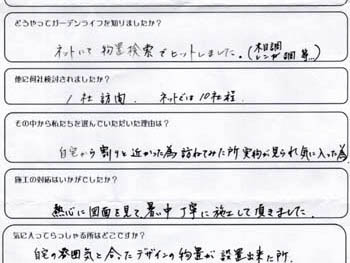 どうやってガーデンライフを知りましたか？
ネットにて 物置検索でヒットしました。(木目調 レンガ調 等…)
他に何社検討されましたか？
1社 訪問、 ネットでは10社程
その中から私たちを選んでいただいた理由は？
自宅から割りと近かった為 訪ねてみた所 実物が見られ気に入った為
施工の対応はいかがでしたか？
熱心に図面を見て、暑い中 丁寧に施工して頂きました。
気に入ってらっしゃる所はどこですか？
自宅の雰囲気と合ったデザインの物置が設置出来た所。